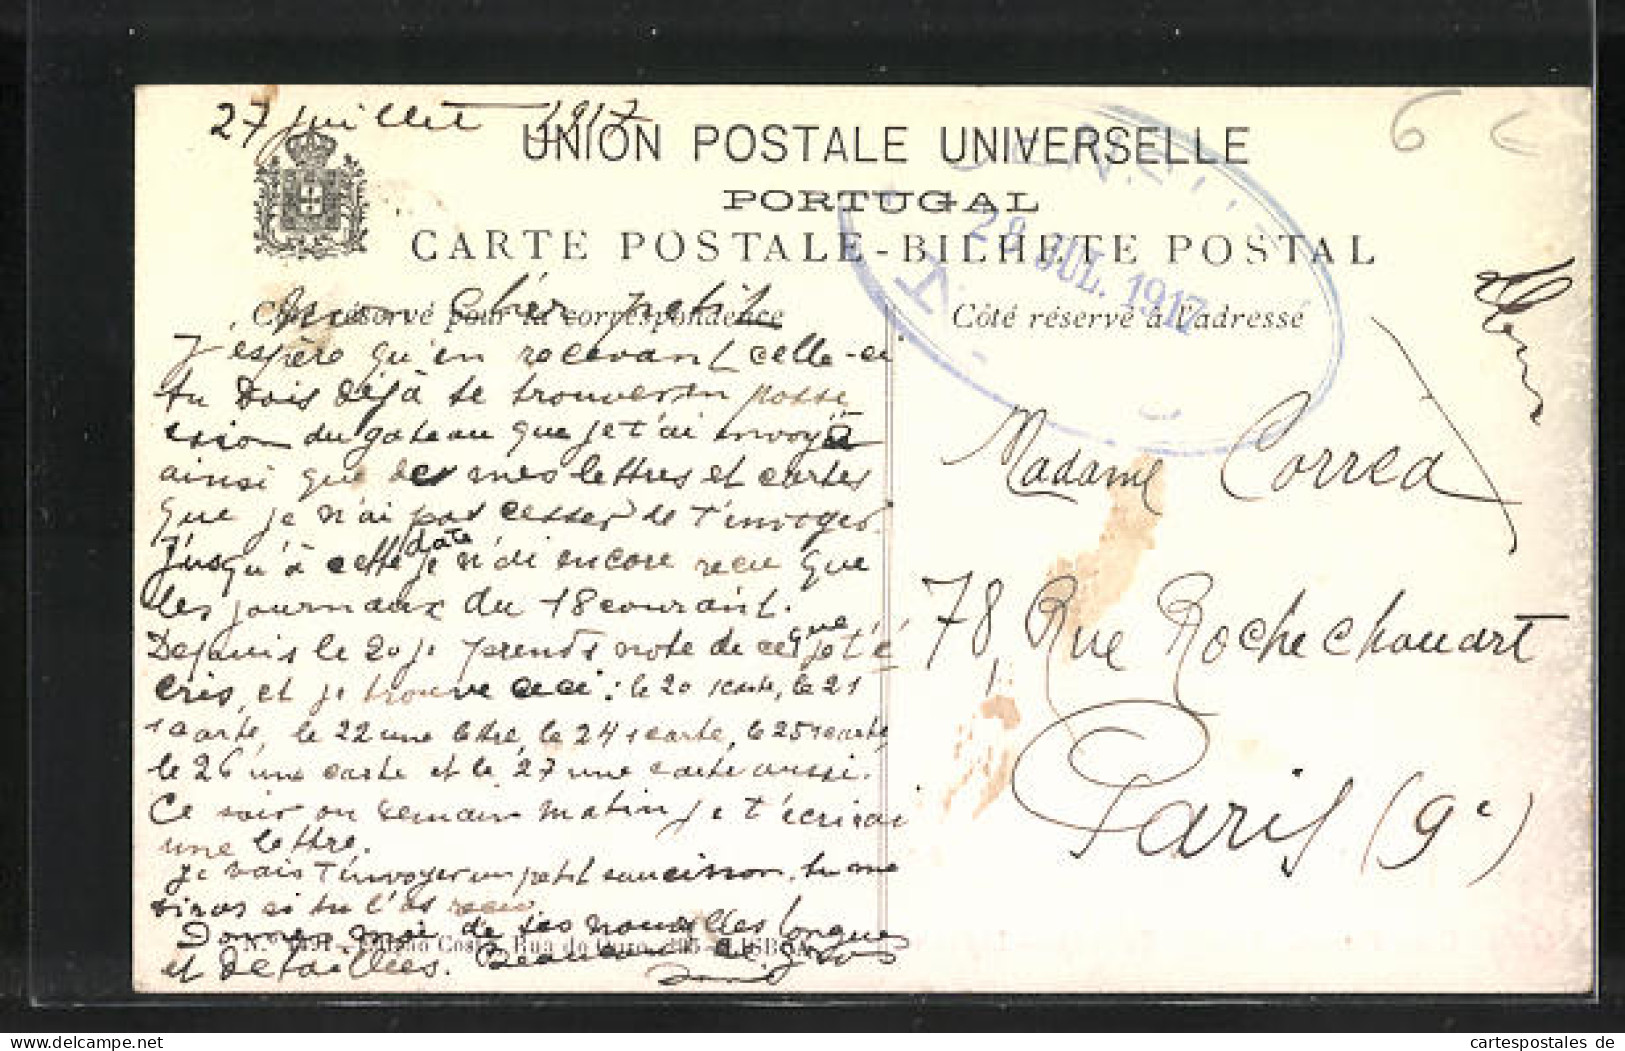 27 juillet 1917
UNION POSTALE UNIVERSELLE
PORTUGAL
CARTE POSTALE-BILHETE POSTAL
Côté réservé pour la correspondence
Côté réservé à l'adressé
28 JUL. 1917
6 €
Mon Cher petit
J'espère qu'en recevant celle-ci
tu dois déjà te trouver en posse
ssion du gateau que je t'ai envoyé
ainsi que des mes lettres et cartes
que je n'ai pas cesser de t'envoyer.
Jusqu'à cette date je n'ai encore recu que
les journaux du 18 courant.
Depuis le 20 je prends note de ce que je t'é
cris, et je trouve ceci : le 20 1 carte, le 21
1 carte, le 22 une lettre, le 24 1 carte, le 25 1 carte,
le 26 une carte et le 27 une carte aussi.
Ce soir ou demain matin je t'écrirai
une lettre.
Je vais t'envoyer un petit saucisson, tu me
diras si tu l'as recu
Donnes moi de tes nouvelles longues
et détaillées. Beaucoup de gros
Madame Correa
78, Rue Rochechouart
Paris (9e)
Costa, Rua do Ouro, 295-LISBOA
www.cartespostales.de
cartespostales de